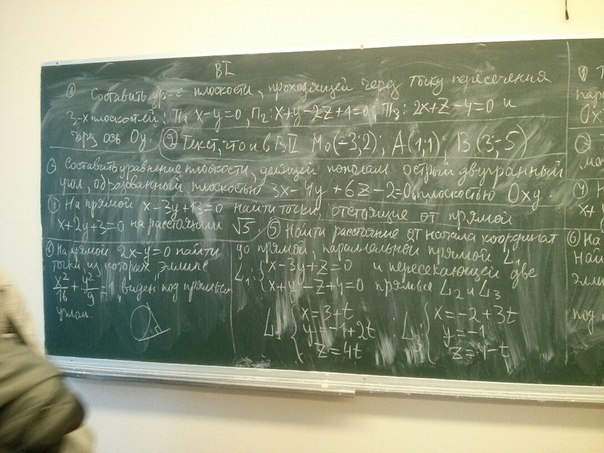 ВI
① Составить ур-е плоскости, проходящей через точку пересечения
3-х плоскостей: П₁: x-y=0, П₂: x+y-2z+1=0; П₃: 2x+z-y=0 и
через ось Oy. ② Текст, что и в ВII M₀(-3;2), A(1;1); B(3;-5)
③ Составить уравнение плоскости, делящей пополам острый двугранный
угол, образованный плоскостью 3x-4y+6z-2=0, плоскостью Oxy
④ На прямой x-3y+13=0 найти точки, отстоящие от прямой
x+2y+3=0 на расстоянии √5
⑤ Найти расстояние от начала координат
до прямой, параллельной прямой L₁:
L₁: { x-3y+z=0
x+y-z+y=0
и пересекающей две
прямые L₂ и L₃
L₂: { x=3+t
y=-1+2t
z=4t
L₃: { x=-2+3t
y=-1
z=4-t
⑥ На прямой 2x-y=0 найти
точки, из которых эллипс
x²/16 + y²/9 = 1, виден под прямым
углом.